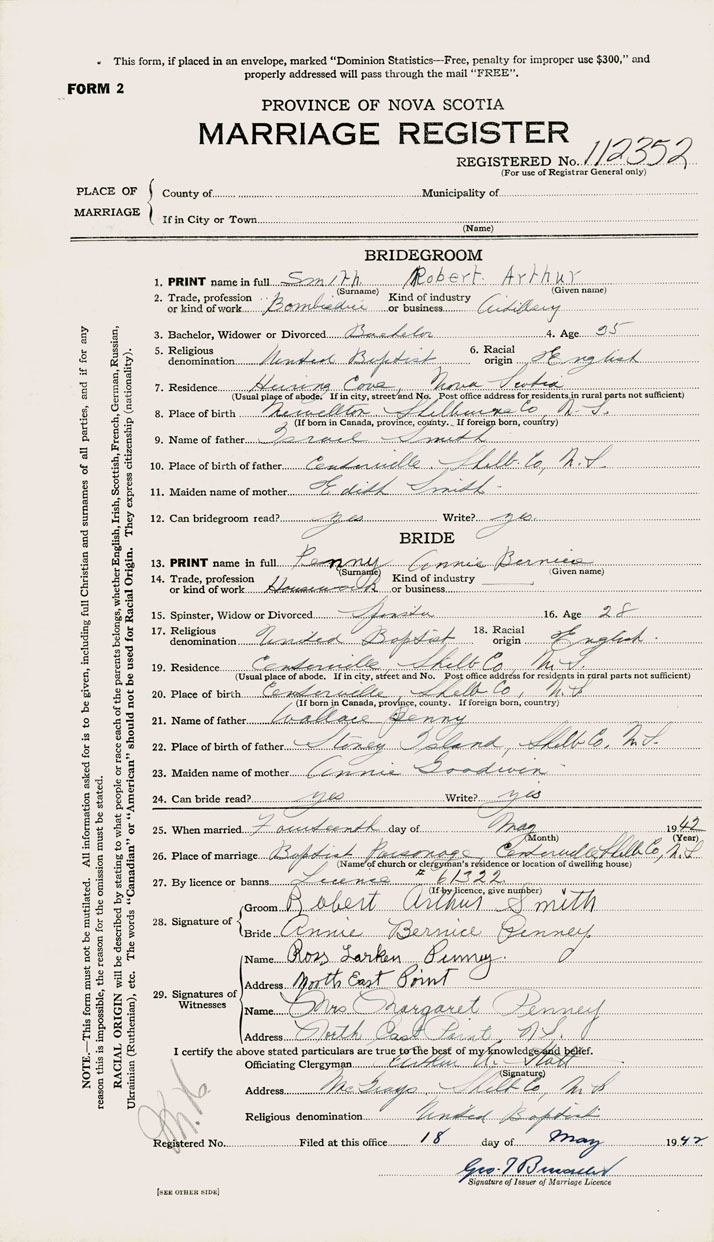 This form, if placed in an envelope, marked "Dominion Statistics—Free, penalty for improper use $300," and
properly addressed will pass through the mail "FREE".
FORM 2
PROVINCE OF NOVA SCOTIA
MARRIAGE REGISTER
REGISTERED No. 112352
(For use of Registrar General only)
PLACE OF MARRIAGE
County of Municipality of
If in City or Town
(Name)
BRIDEGROOM
1. PRINT name in full Smith Robert Arthur
(Surname) (Given name)
2. Trade, profession or kind of work Bombadier Kind of industry or business Artillery
3. Bachelor, Widower or Divorced Bachelor 4. Age 25
5. Religious denomination United Baptist 6. Racial origin English
7. Residence Herring Cove, Nova Scotia
(Usual place of abode. If in city, street and No. Post office address for residents in rural parts not sufficient)
8. Place of birth Newellton Shelburne Co, N.S.
(If born in Canada, province, county. If foreign born, country)
9. Name of father Israel Smith
10. Place of birth of father Centerville Shelb. Co, N.S.
11. Maiden name of mother Edith Smith
12. Can bridegroom read? yes Write? yes.
BRIDE
13. PRINT name in full Penny Annie Bernice
(Surname) (Given name)
14. Trade, profession or kind of work Housework Kind of industry or business
15. Spinster, Widow or Divorced Spinster 16. Age 28
17. Religious denomination United Baptist 18. Racial origin English.
19. Residence Centerville, Shelb Co, N.S.
(Usual place of abode. If in city, street and No. Post office address for residents in rural parts not sufficient)
20. Place of birth Centerville, Shelb Co, N.S
(If born in Canada, province, county. If foreign born, country)
21. Name of father Wallace Penny
22. Place of birth of father Stoney Island, Shelb Co. N.S.
23. Maiden name of mother Annie Goodwin
24. Can bride read? yes Write? yes
25. When married Fourteenth day of May 1942
(Month) (Year)
26. Place of marriage Baptist Parsonage, Centerville Shelb Co, N.S
(Name of church or clergyman's residence or location of dwelling house)
27. By licence or banns Licence # 61322
(If by licence, give number)
28. Signature of
Groom Robert Arthur Smith
Bride Annie Bernice Penney
29. Signatures of Witnesses
Name Ross Larken Penney.
Address North East Point
Name Mrs. Margaret Penney
Address North East Point, N.S.
I certify the above stated particulars are true to the best of my knowledge and belief.
Officiating Clergyman
(Signature)
Address McGrays, Shelb Co, N.S
Religious denomination United Baptist
Registered No. Filed at this office 18 day of May 1942
Geo. T
Signature of Issuer of Marriage Licence
[SEE OTHER SIDE]
NOTE.—This form must not be mutilated. All information asked for is to be given, including full Christian and surnames of all parties, and if for any
reason this is impossible, the reason for the omission must be stated.
RACIAL ORIGIN will be described by stating to what people or race each of the parents belongs, whether English, Irish, Scottish, French, German, Russian,
Ukrainian (Ruthenian), etc. The words "Canadian" or "American" should not be used for Racial Origin. They express citizenship (nationality).